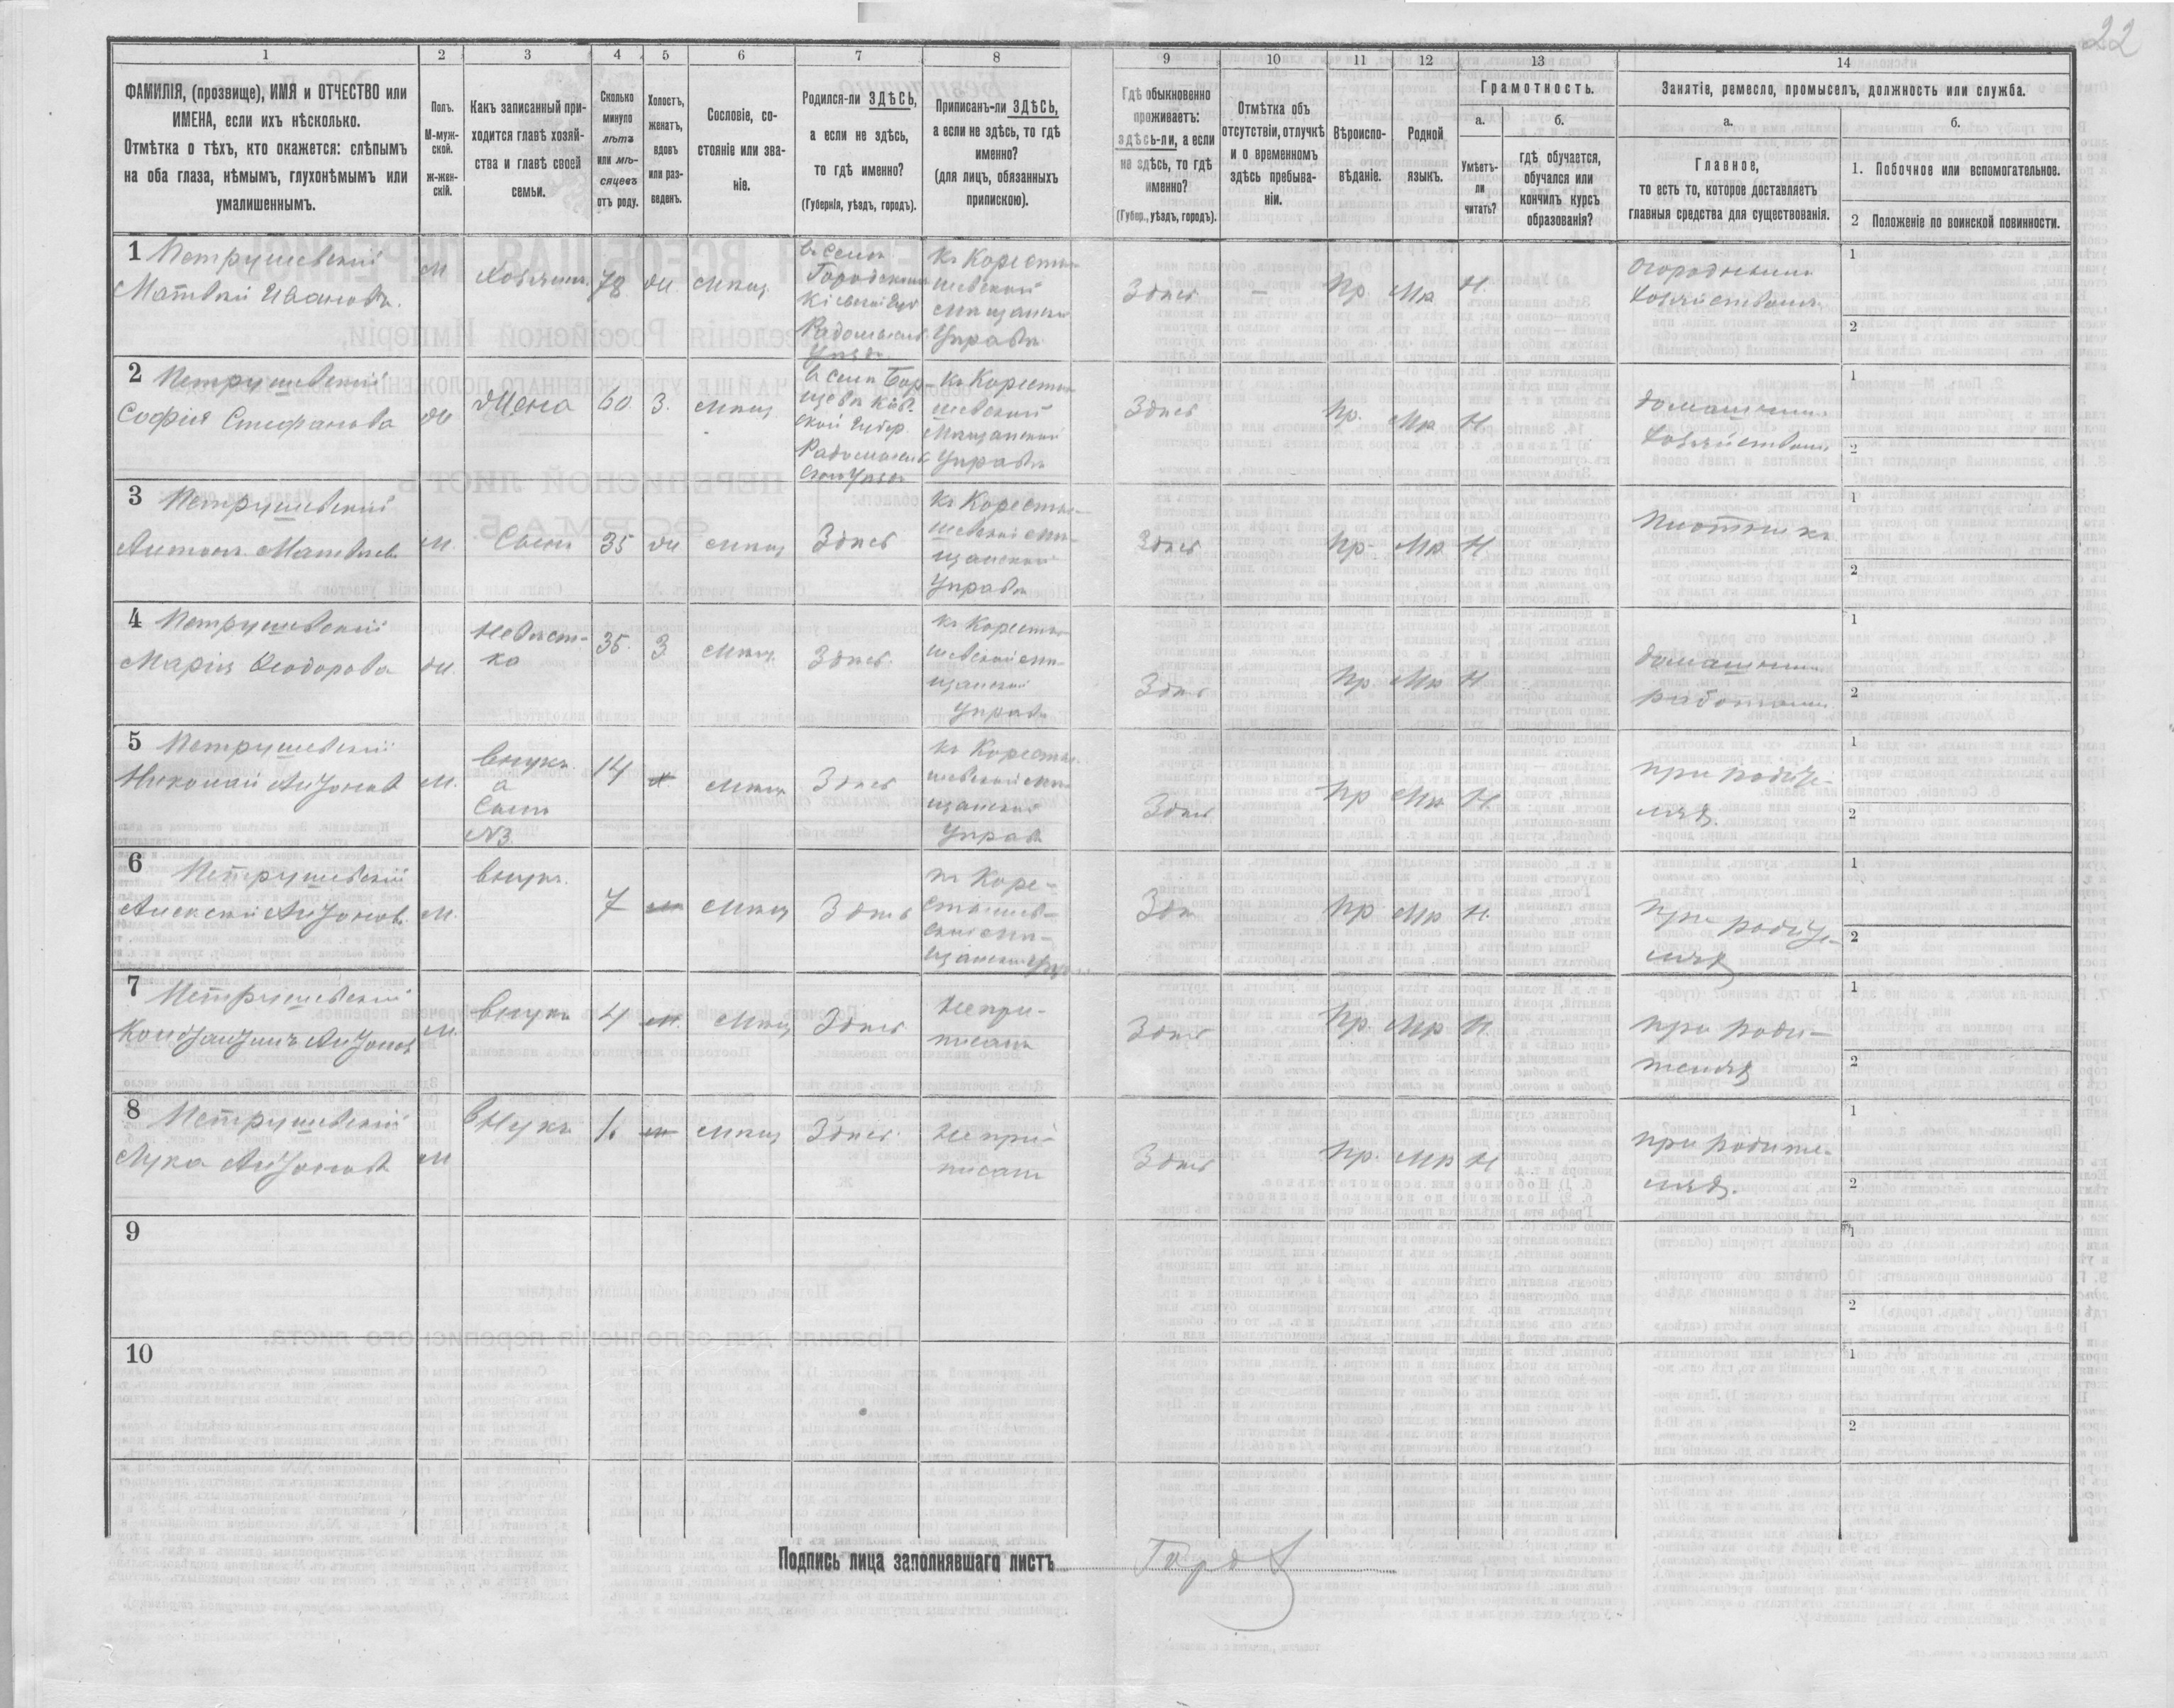 22
1
2
3
4
5
6
7
8
9
10
11
12
13
14
ФАМИЛІЯ, (прозвище), ИМЯ и ОТЧЕСТВО или
ИМЕНА, если ихъ нѣсколько.
Отмѣтка о тѣхъ, кто окажется: слѣпымъ
на оба глаза, нѣмымъ, глухонѣмымъ или
умалишеннымъ.
Полъ.
М-муж-
ской.
ж-жен-
скій.
Какъ записанный при-
ходится главѣ хозяй-
ства и главѣ своей
семьи.
Сколько
минуло
лѣтъ
или мѣ-
сяцевъ
отъ роду.
Холостъ,
женатъ,
вдовъ
или раз-
веденъ.
Сословіе, со-
стояніе или зва-
ніе.
Родился-ли ЗДѢСЬ,
а если не здѣсь,
то гдѣ именно?
(Губернія, уѣздъ, городъ).
Приписанъ-ли ЗДѢСЬ,
а если не здѣсь, то гдѣ
именно?
(для лицъ, обязанныхъ
припискою).
Гдѣ обыкновенно
проживаетъ:
здѣсь-ли, а если
не здѣсь, то гдѣ
именно?
(Губер., уѣздъ, городъ).
Отмѣтка объ
отсутствіи, отлучкѣ
и о временномъ
здѣсь пребыва-
ніи.
Вѣроиспо-
вѣданіе.
Родной
языкъ.
Грамотность.
а.
Умѣетъ-
ли
читать?
б.
гдѣ обучается,
обучался или
кончилъ курсъ
образованія?
Занятіе, ремесло, промыселъ, должность или служба.
а.
Главное,
то есть то, которое доставляетъ
главныя средства для существованія.
б.
1. Побочное или вспомогательное.
2 Положеніе по воинской повинности.
1 Петрушевскій
Матвѣй Ивановъ.
М
Хозяинъ
78
ж
мѣщ.
в селѣ
Городскомъ
Кіевской Губ
Радомысльск.
Уѣзда.
Къ Коросты-
шевской
мѣщанской
Управѣ
Здѣсь
—
Пр.
Мр
Н.
огороднымъ
хозяйствомъ
1
2
2 Петрушевскій
Софія Стефанова
ж
Жена
60.
З.
мѣщ
в селѣ
Радомысльск
Къ Коросты-
шевской
Мѣщанской
Управѣ
Здѣсь
Пр.
Мр
Н
домашнимъ
хозяйствомъ
1
2
3 Петрушевскій
Антонъ Матвѣевъ
М.
Сынъ
35
ж
мѣщ
Здѣсь
Къ Коросты-
шевской мѣ-
щанской
Управѣ
Здѣсь
Пр.
Мр
Н
плотникъ
1
2
4 Петрушевскій
Марія Ѳеодорова
ж.
Невѣст-
ка
35.
З
мѣщ.
Здѣсь.
Къ Коросты-
шевской мѣ-
щанской
Управѣ
Здѣсь
Пр.
Мр
Н
домашними
работами
1
2
5 Петрушевскій
Николай Антоновъ
М.
внукъ.
а
Сынъ
№3.
14
х.
мѣщ
Здѣсь
Къ Коросты-
шевской мѣ-
щанской
Управѣ
Здѣсь
Пр
Мр
Н
при родите-
ляхъ.
1
2
6 Петрушевскій
Алексѣй Антоновъ.
М.
внукъ.
7
мѣщ
Здѣсь
Къ Коро-
стышев-
ской мѣ-
щанской Управѣ
Зд
Пр
Мр
Н.
при родите-
ляхъ
1
2
7 Петрушевскій
Константинъ Антоновъ
М.
внукъ
4
мѣщ
Здѣсь
Не при-
писанъ
Здѣсь
Пр.
Мр
Н.
при роди-
теляхъ
1
2
8 Петрушевскій
Лука Антоновъ
М
внукъ
1.
мѣщ
Здѣсь.
Не при-
писанъ
Здѣсь
Пр.
Мр
Н
при родите-
ляхъ.
1
2
9
1
2
10
1
2
Подпись лица заполнявшаго листъ